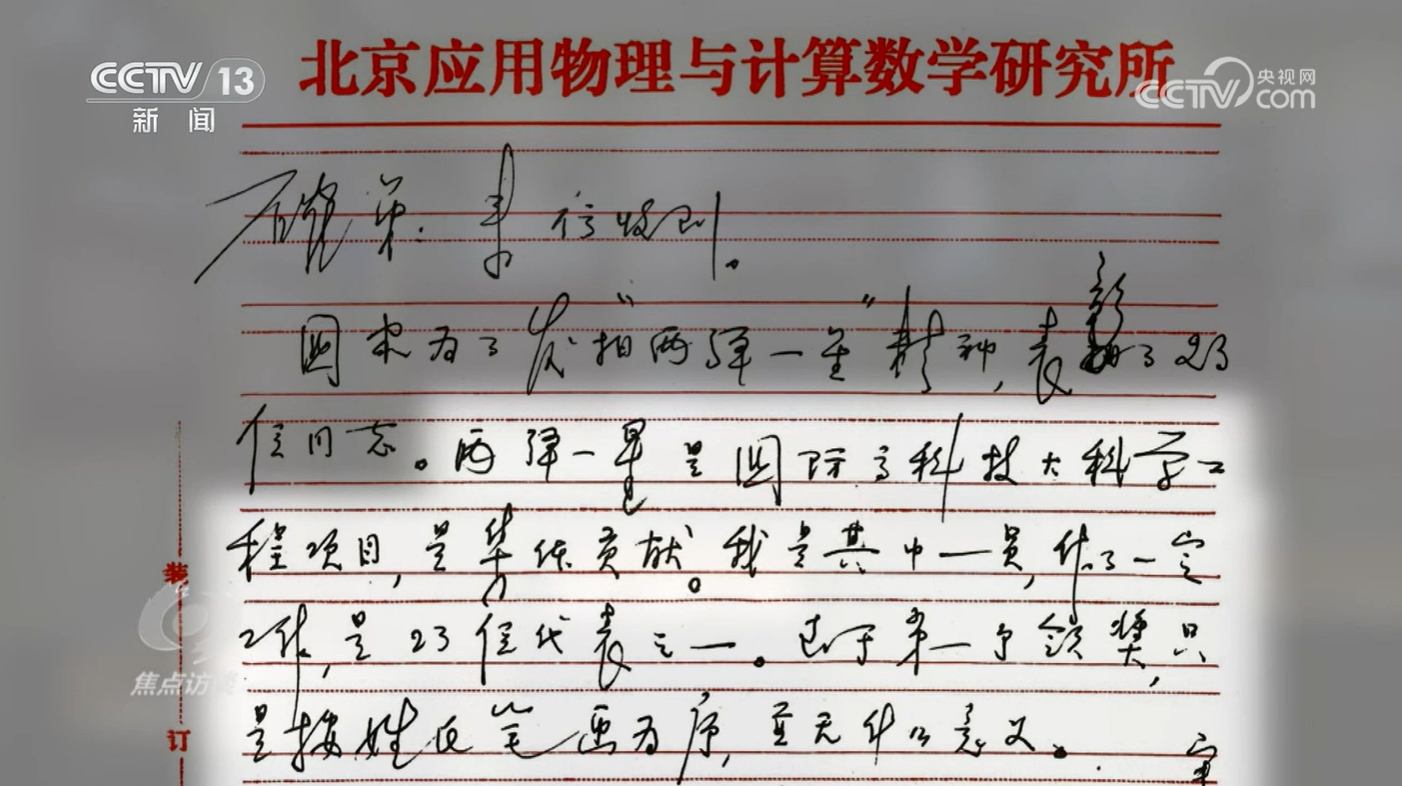 CCTV 13
新闻
北京应用物理与计算数学研究所
央视网
CCTV com
弟:来信收到。
国家为了发扬"两弹一星"精神,表彰了23
位同志。两弹一星是国际高科技大科学工
程项目,是集体贡献。我是其中一员,作了一定
工作,是23位代表之一。至于第一个领奖,只
是按姓氏笔画为序,并无什么意义。
装
焦点访谈
订